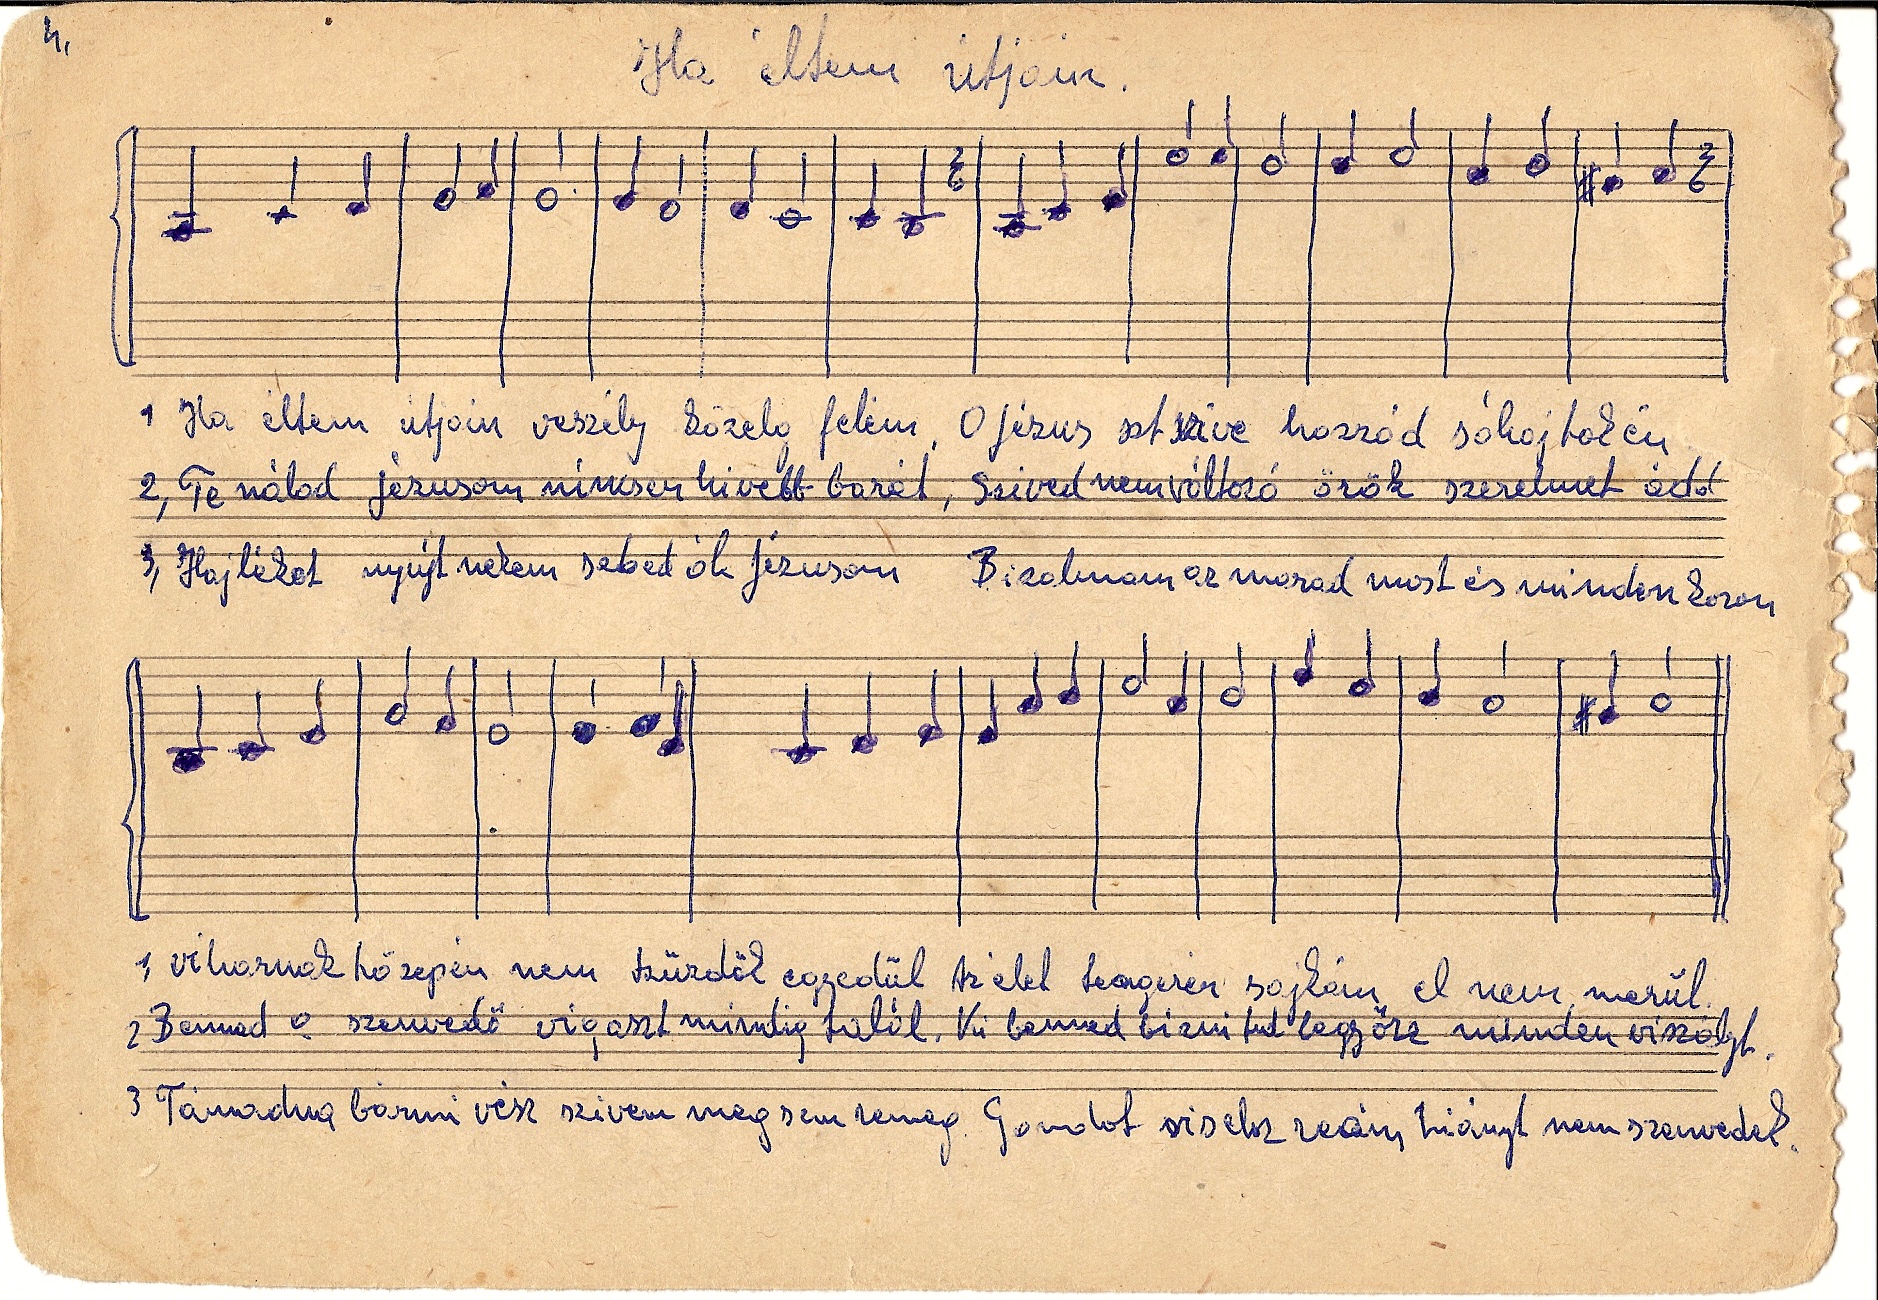 4,
Ha éltem útjain.
1 Ha éltem útjain veszély közelg felém, O Jézus szt szive hozzád sóhajtok én
2, Te nálad Jézusom nincsen hivebb barát, Szived nem változó örök szerelmet ádd
3, Hajlékot nyújt nekem sebed óh Jézusom Bizalmam az marad most és minden koron
1, viharnak közepén nem küzdök egyedül Az élet tengerén sajkám el nem merül.
2 Benned a szenvedő vigaszt mindig talál, Ki benned bizni tud legyőze minden viszályt.
3 Támadna bármi vész szivem meg sem remeg. Gondot viselsz reám, hiányt nem szenvedek.